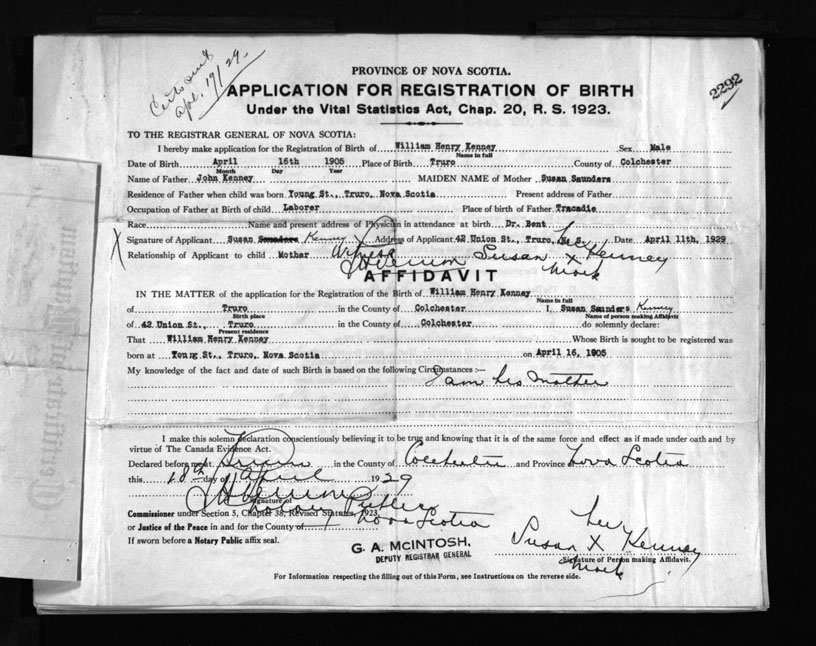 Certs sent
Apl. 19/29.
2292
PROVINCE OF NOVA SCOTIA.
APPLICATION FOR REGISTRATION OF BIRTH
Under the Vital Statistics Act, Chap. 20, R. S. 1923.
TO THE REGISTRAR GENERAL OF NOVA SCOTIA:
I hereby make application for the Registration of Birth of William Henry Kenney Sex Male
Name in full
Date of Birth April 16th 1905 Place of Birth Truro County of Colchester
Month Day Year
Name of Father John Kenney MAIDEN NAME of Mother Susan Saunders
Residence of Father when child was born Young St., Truro, Nova Scotia Present address of Father
Occupation of Father at Birth of child Laborer Place of birth of Father Tracadie
Race Name and present address of Physician in attendance at birth Dr. Bent
X Signature of Applicant Susan Saunders Kenney Address of Applicant 42 Union St., Truro, N. S. Date April 11th, 1929
her
Relationship of Applicant to child Mother Witness Susan X Kenney
mark
AFFIDAVIT
IN THE MATTER of the application for the Registration of the Birth of William Henry Kenney
Name in full
of Truro in the County of Colchester I, Susan Saunders Kenney
Birth place Name of person making Affidavit
of 42 Union St., Truro in the County of Colchester do solemnly declare:
Present residence
That William Henry Kenney Whose Birth is sought to be registered was
born at Young St., Truro, Nova Scotia on April 16, 1905
My knowledge of the fact and date of such Birth is based on the following Circumstances :—
I am his mother
I make this solemn declaration conscientiously believing it to be true and knowing that it is of the same force and effect as if made under oath and by
virtue of The Canada Evidence Act.
Declared before me at Truro in the County of Colchester and Province Nova Scotia
this 18th day of April 1929
Signature of
Notary Public
Commissioner under Section 5, Chapter 38, Revised Statutes, 1923
Nova Scotia
or Justice of the Peace in and for the County of
If sworn before a Notary Public affix seal.
G. A. McINTOSH,
DEPUTY REGISTRAR GENERAL
her
Susan X Kenney
Signature of Person making Affidavit.
mark
For Information respecting the filling out of this Form, see Instructions on the reverse side.
Certificate of Baptism